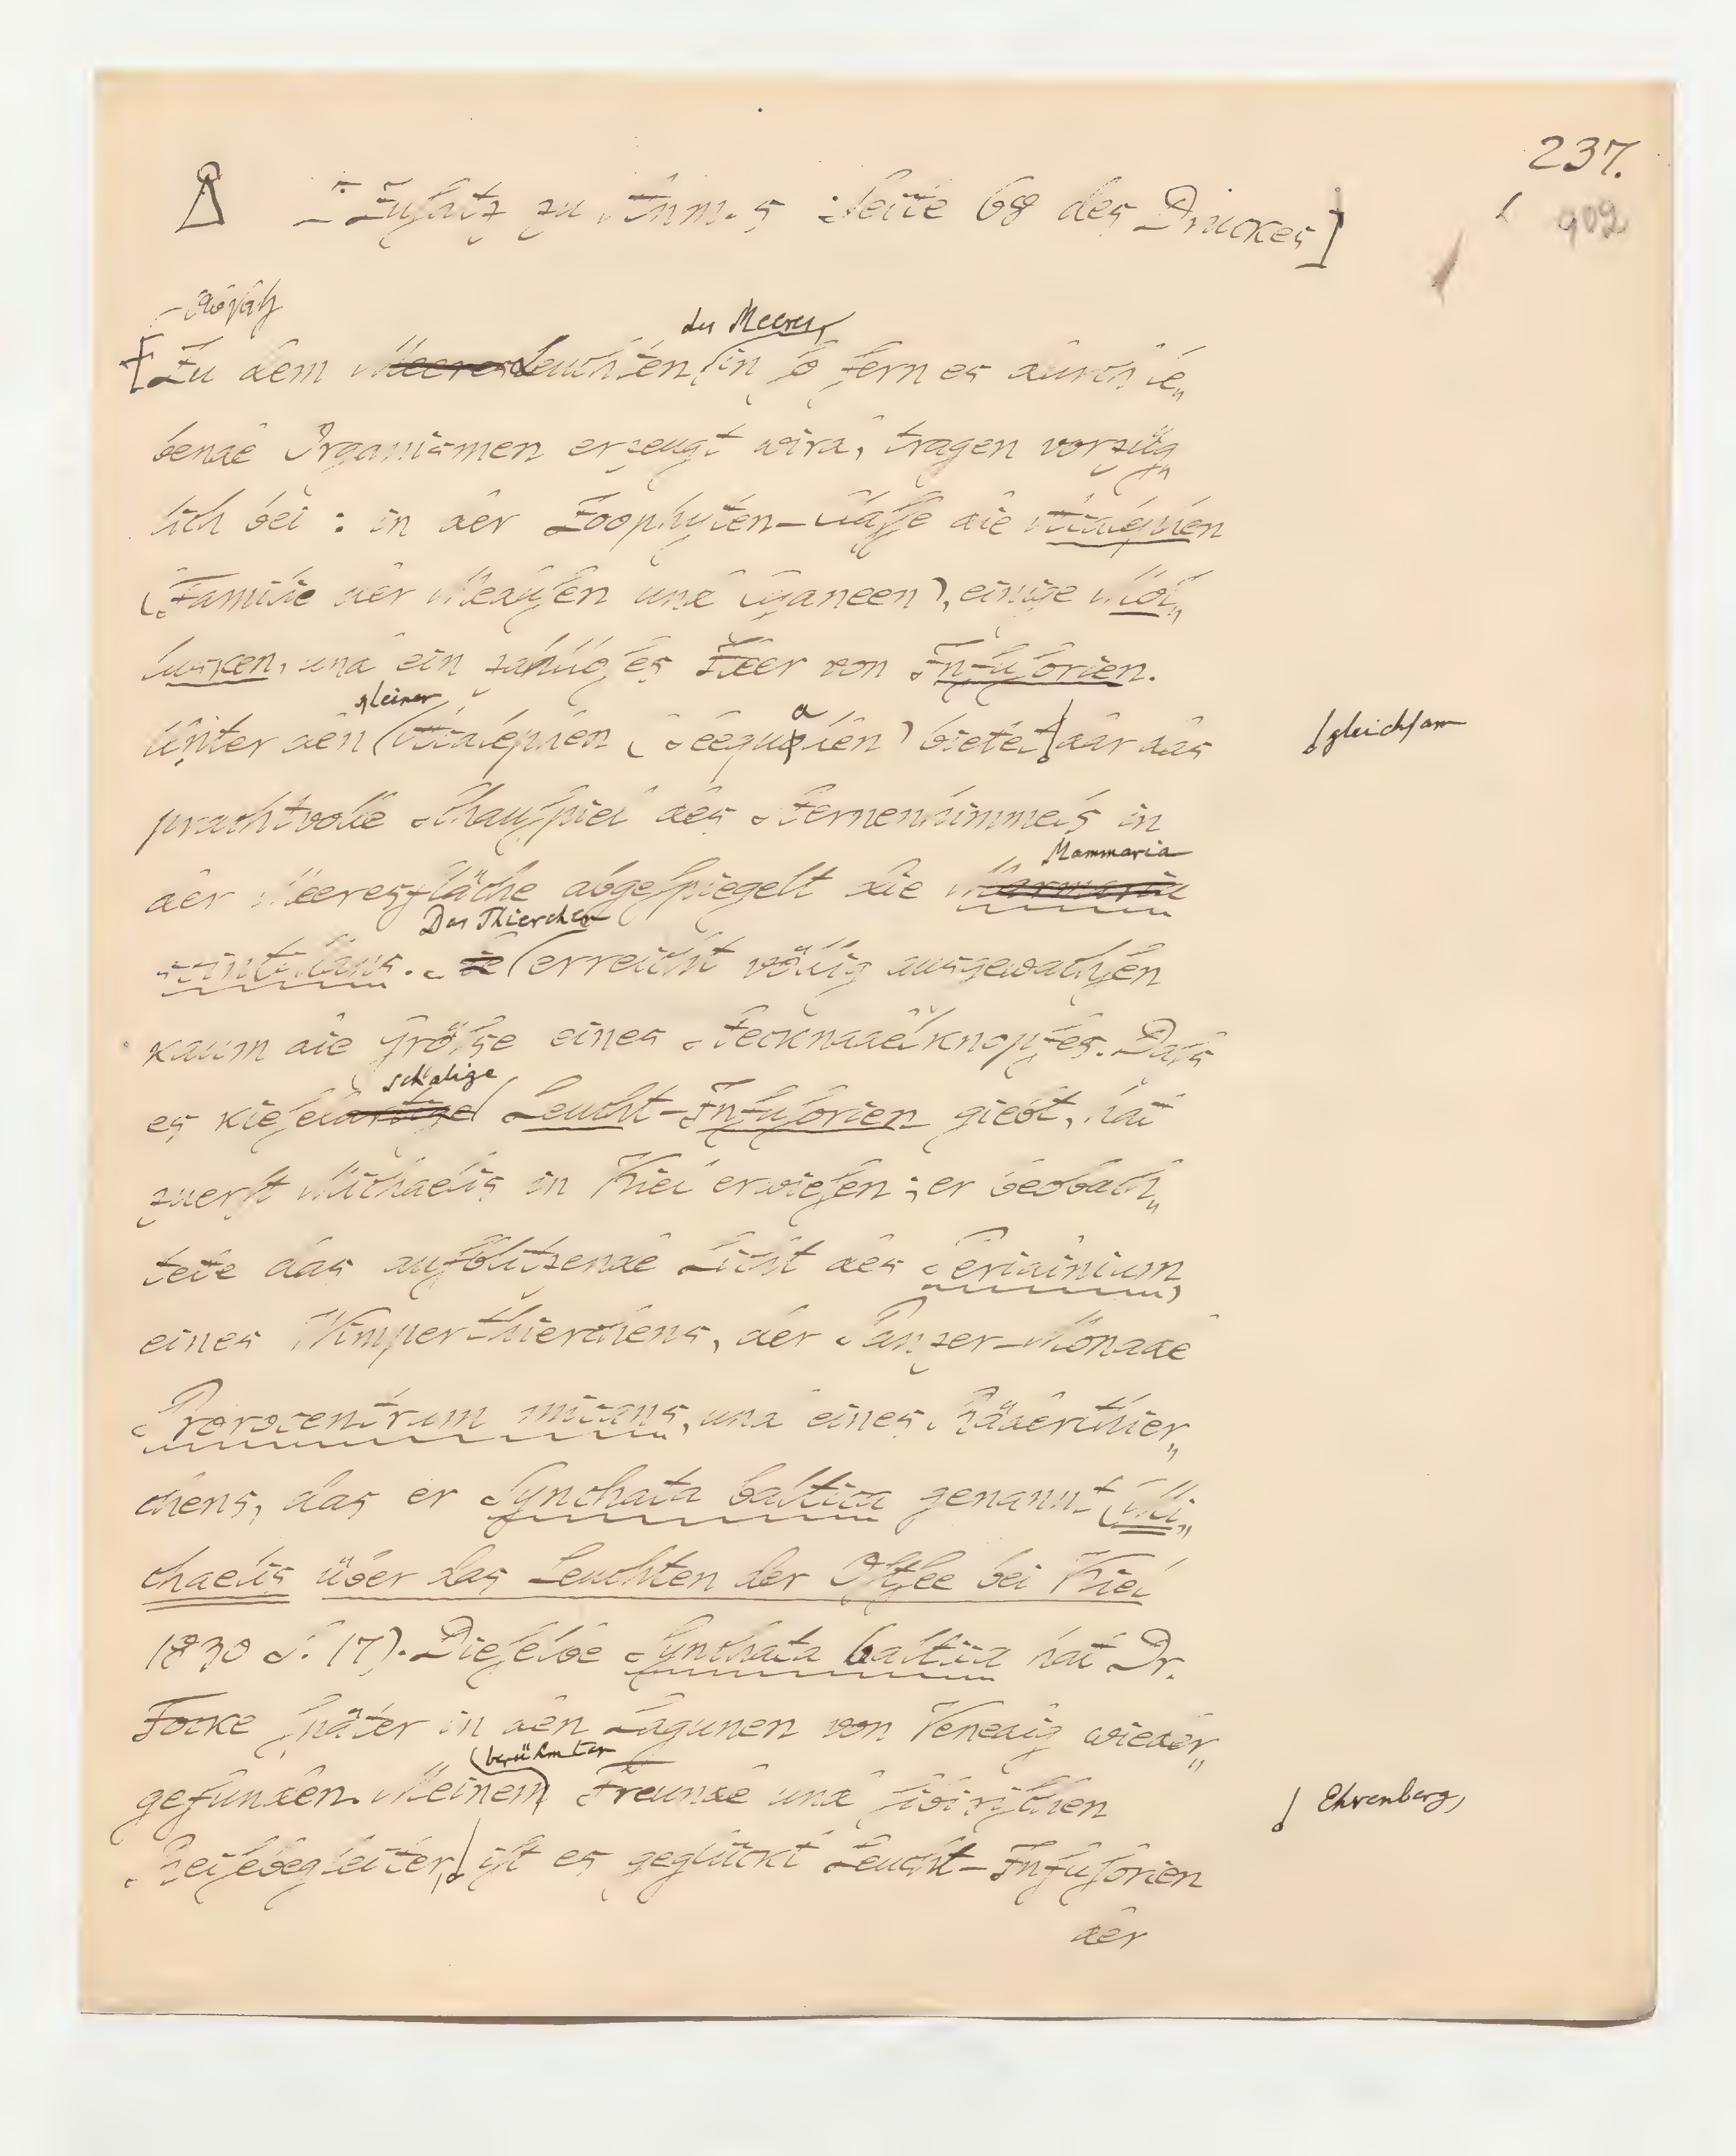 237.
902
[Zusatz zu Anm. 5 Seite 68 des Druckes]
Absatz
des Meeres,
[Zu dem Meeres Leuchten, in so fern es durch le„
bende Organismen erzeugt wird, tragen vorzüg„
lich bei: in der Zoophyten-Classe die Acalephen
(Familie der Medusen und Cyaneen), einige Mol„
lusken, und ein zahlloses Heer von Infusorien.
kleiner
Unter den Acalephen (Seequallen) bietet dar das
gleichsam
prachtvolle Schauspiel des Sternenhimmels in
Mammaria
der Meeresfläche abgespiegelt die Marmaria
Das Thierchen
scintillans. Sie erreicht völlig ausgewachsen
kaum die Größe eines Stecknadelknopfes. Daß
schalige
es kieselartige Leucht-Infusorien giebt, hat
zuerst Michaelis in Kiel erwiesen; er beobach„
tete das aufblitzende Licht des Peridinium,
eines Wimperthierchens, der Panzer-Monade
Prorocentrum micans, und eines Räderthier„
chens, das er Synchata baltica genannt (Mi„
chaelis über das Leuchten der Ostsee bei Kiel
1830 S. 17). Dieselbe Synchata baltica hat Dr.
Focke später in den Lagunen von Venedig wieder„
berühmten
gefunden. Meinem Freunde und sibirischen
Ehrenberg,
Reisebegleiter, ist es geglückt Leucht-Infusorien
der